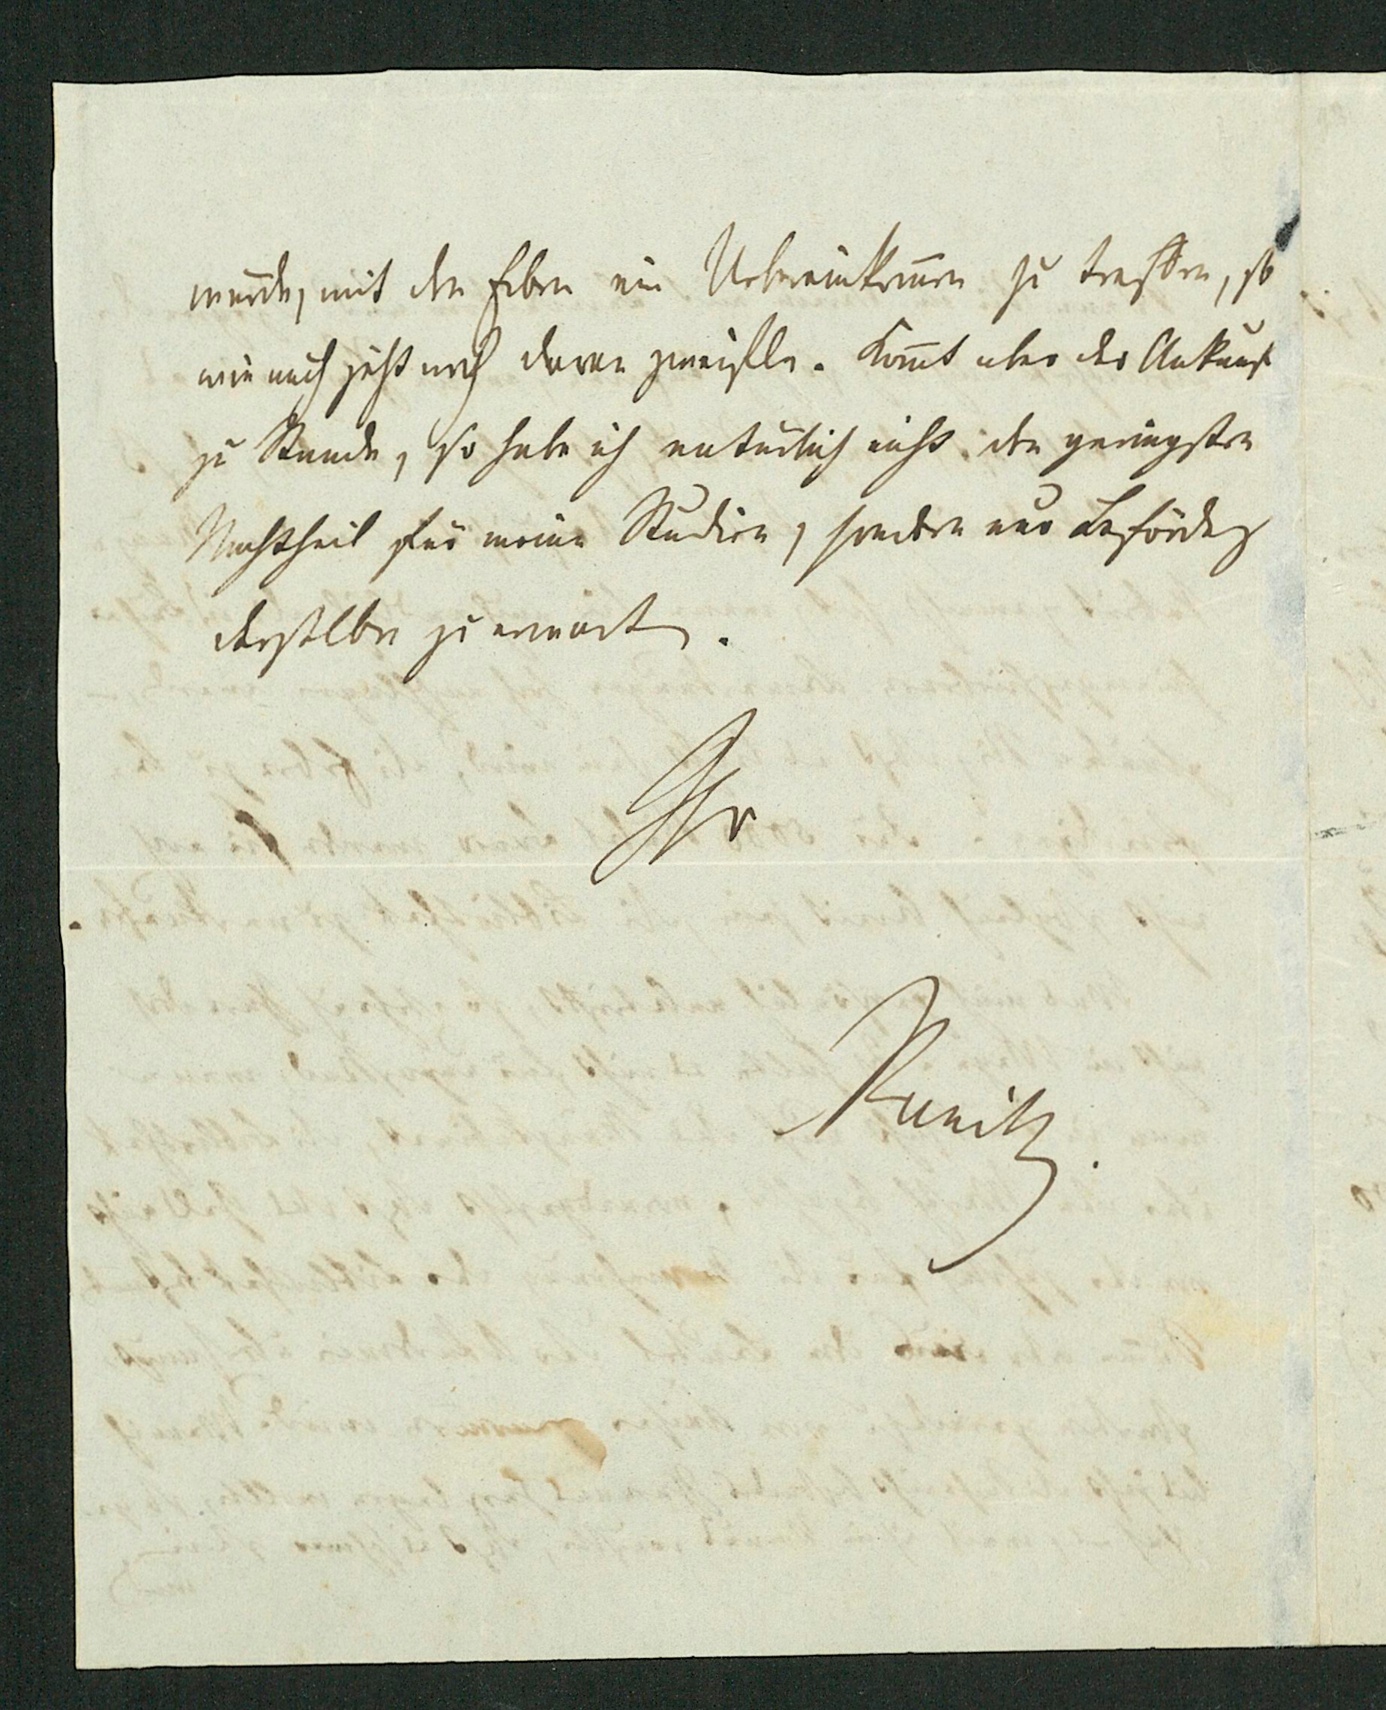 würde, mit den Erben ein Uebereinkom̄en zu treffen, so
wie auch jetzt noch daran zweifle. Kom̄t aber der Ankauf
zu Stande, so habe ich natürlich nicht den geringsten
Nachtheil für meine Studien, sondern nur Beförderung
derselben zu erwarten.
Ihr
Kunitz.